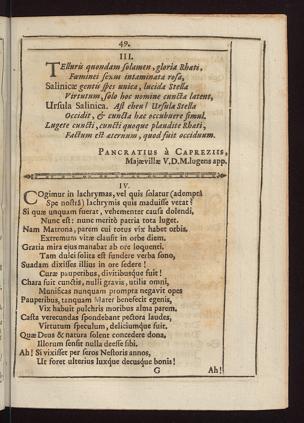 49.
III.
TElluris quondam solamen, gloria Rhæti,
Fæminei sexus intaminata rosa,
Salinicæ gentis spes unica, lucida Stella
Virtutum, solo hoc nomine cuncta latent,
Ursula Salinica. Ast eheu! Ursula Stella
Occidit, & cuncta hæc occubuere simul.
Lugete cuncti, cuncti quoque plaudite Rhæti,
Factum est æternum, quod fuit occiduum.
PANCRATIUS à CAPREZIIS,
Majævillæ V.D.M. lugens app.
IV.
COgimur in lachrymas, vel quis solatur (ademptâ
Spe nostrâ) lachrymis quis maduisse vetat?
Si quæ unquam fuerat, vehementer causa dolendi,
Nunc est: nunc meritò patria tota luget.
Nam Matrona, parem cui totus vix habet orbis,
Extremum vitæ clausit in orbe diem.
Gratia mira ejus manabat ab ore loquenti,
Tam dulci solita est fundere verba sono,
Suadam dixisses illius in ore sedere!
Curæ pauperibus, divitibusque fuit!
Chara fuit cunctis, nulli gravis, utilis omni,
Munificas nunquam prompta negavit opes
Pauperibus, tanquam Mater benefecit egenis,
Vix habuit pulchris moribus alma parem.
Casta verecundas spondebant pectora laudes,
Virtutum speculum, deliciumque fuit.
Quæ Deus & natura solent concedere dona,
Illorum sensit nulla deesse sibi.
Ah! Si vixisset per seros Nestoris annos,
Ut foret ulterius luxque decusque bonis!
G Ah!